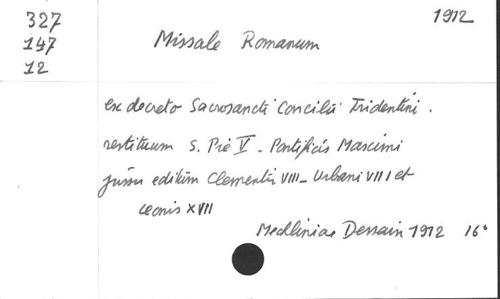 327
147
12
1912
Missale Romanum
ex decreto Sacrosancti Concilii Tridentini.
restituum S. Pie V - Pontificis Maximi
jussu editum Clementis VIII - Urbani VIII et
Leonis XVII
Mechliniae Dessain 1912 16°